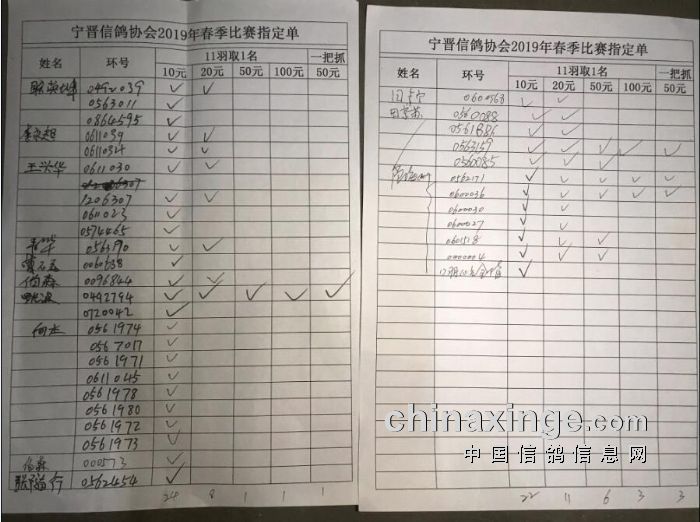 宁晋信鸽协会2019年春季比赛指定单
姓名 环号 11羽取1名 一把抓
10元 20元 50元 100元 50元
0492039 ✓ ✓
0563011 ✓
0864595 ✓
0611039 ✓ ✓
0611032 ✓ ✓
王兴华 0611030 ✓ ✓
1206307 ✓ ✓
060023 ✓
0574465 ✓
✓ ✓
0060638 ✓
伯森 0096844 ✓ ✓
0492794 ✓ ✓ ✓ ✓ ✓
0720042 ✓
0561974 ✓
0567017 ✓
0561971 ✓
0611045 ✓
0561978 ✓
0561980 ✓
0561972 ✓
0561973 ✓
伯森 000573 ✓
0562454 ✓
24 8 1 1 1
宁晋信鸽协会2019年春季比赛指定单
姓名 环号 11羽取1名 一把抓
10元 20元 50元 100元 50元
0600568 ✓ ✓
0560088 ✓ ✓ ✓
0561886 ✓ ✓
0563159 ✓ ✓ ✓ ✓ ✓
0560085 ✓ ✓ ✓
0562171 ✓ ✓ ✓ ✓ ✓
0600036 ✓ ✓ ✓ ✓ ✓
0600030 ✓ ✓
0600027 ✓ ✓
0601518 ✓ ✓ ✓
0000004 ✓ ✓ ✓
✓
22 11 6 3 3
chinaxinge.com
中国信鸽信息网